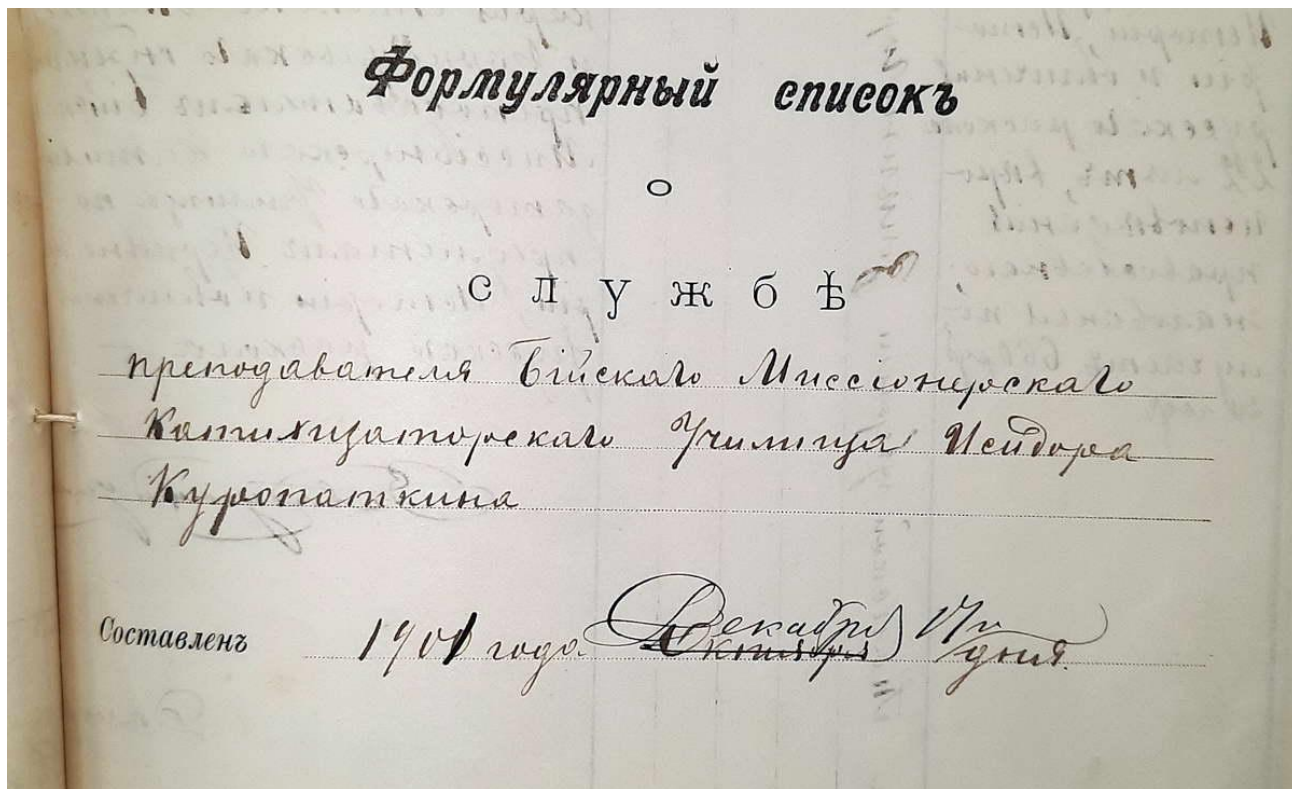 Формулярный списокъ
о
службѣ
преподавателя Бійскаго Миссіонерскаго
Катихизаторскаго Училища Исидора
Куропаткина
Составленъ 1901 года Декабря дня